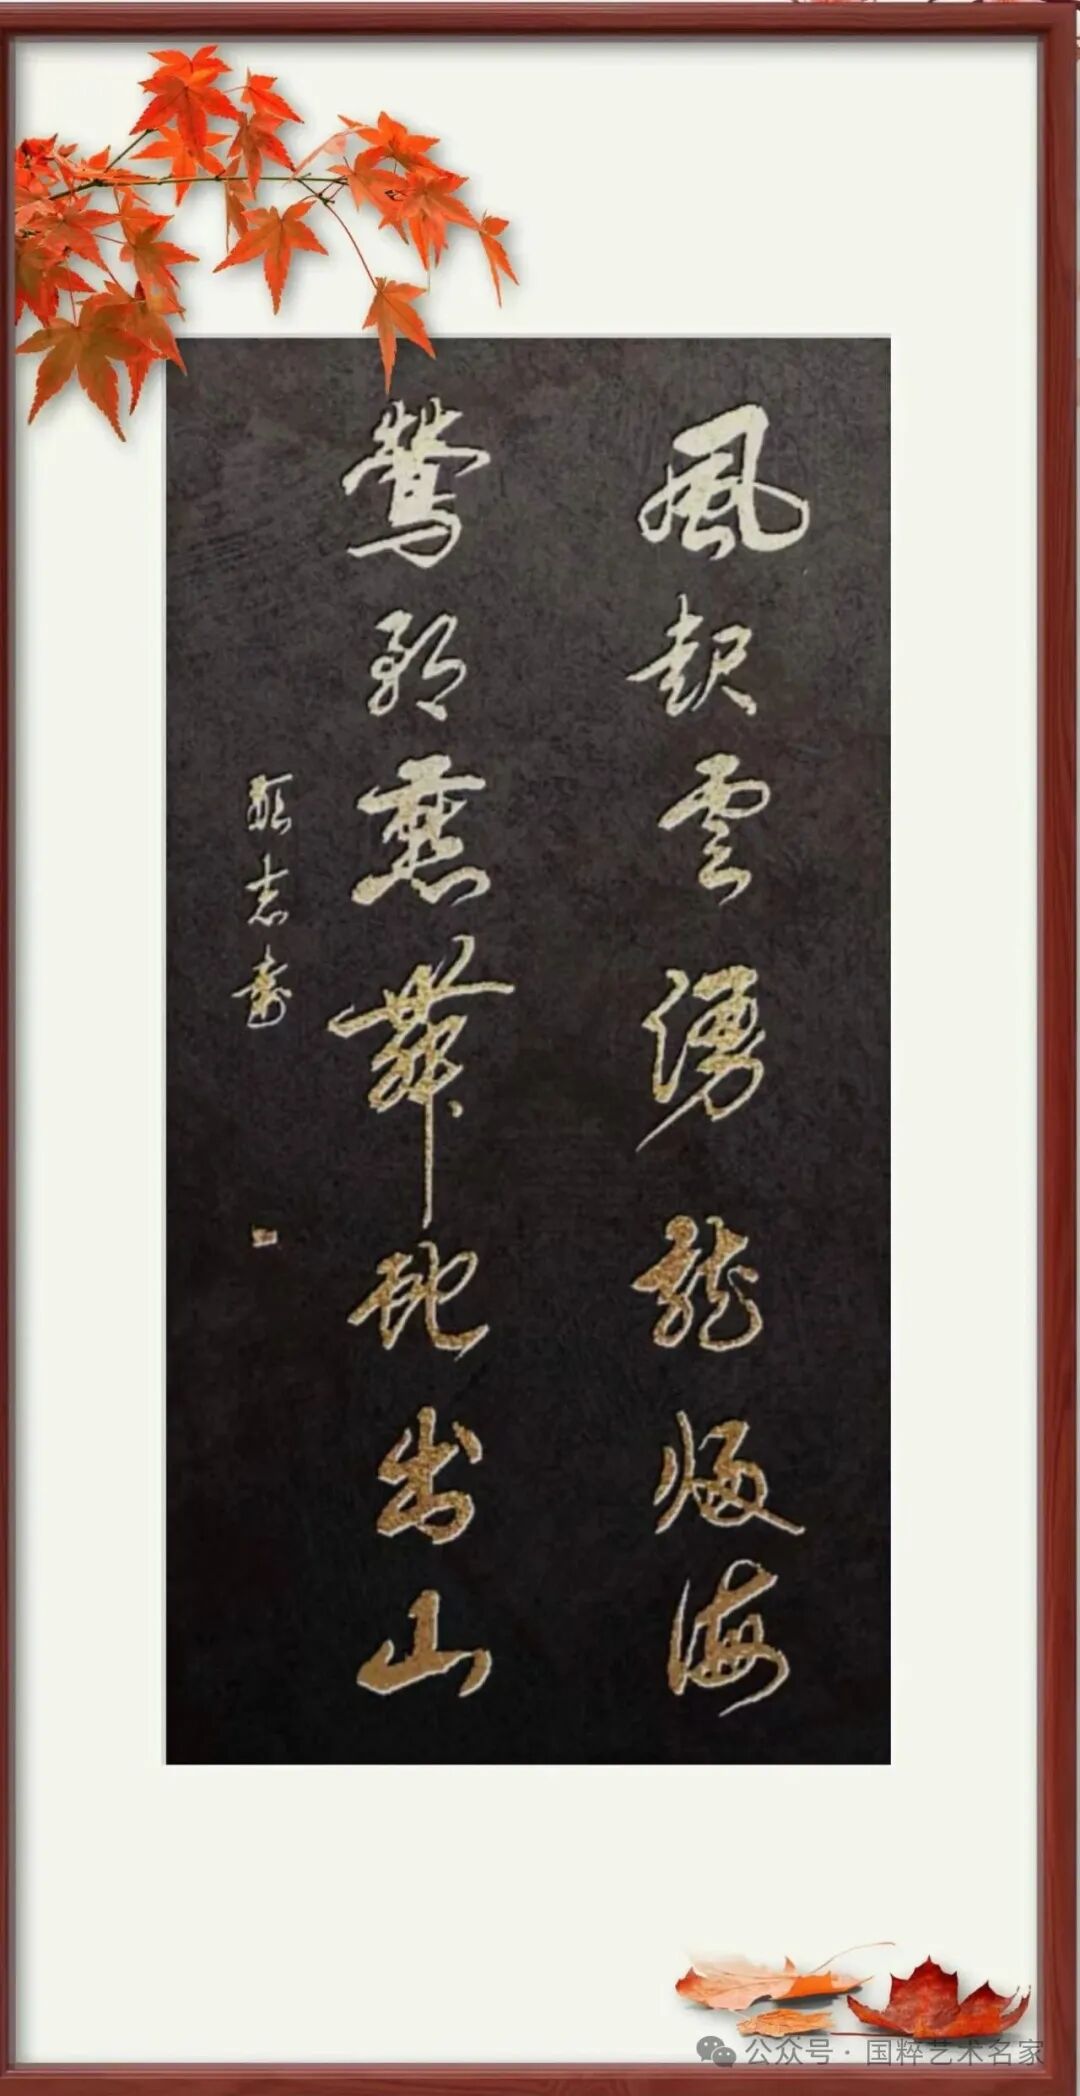 風起雲湧龍歸海
鶯歌燕舞出山
志壽
公众号·国粹艺术名家